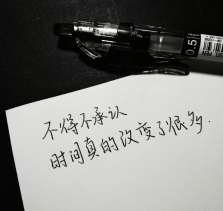 0.5
不得不承认
时间真的改变了很多.